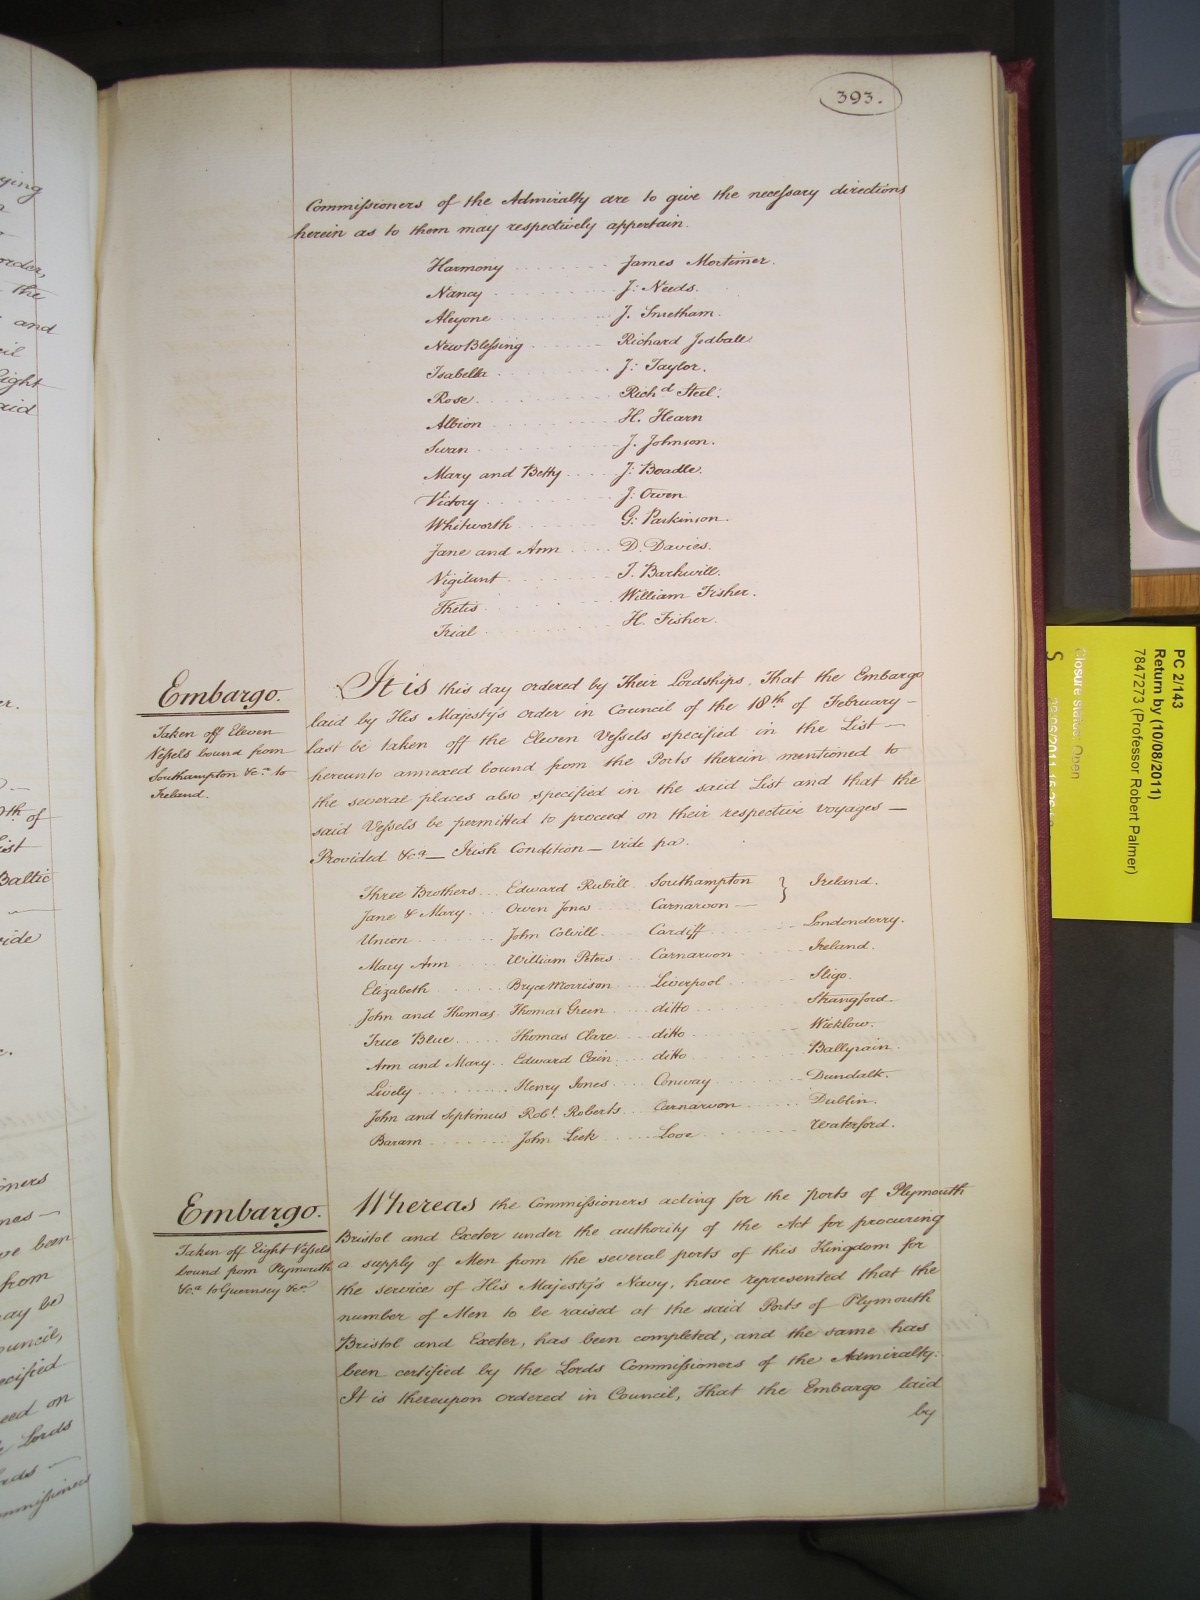 393.
Commissioners of the Admiralty are to give the necessary directions
herein as to them may respectively appertain.
Harmony James Mortimer.
Nancy J: Needs.
Alcyone J. Smetham.
New Blessing Richard Jedball
Isabella J: Taylor.
Rose. Richd Steel.
Albion H. Hearn
Swan J. Johnson.
Mary and Betty J: Boadle.
Victory J. Owen
Whitworth G. Parkinson.
Jane and Ann D. Davies.
Vigilant J. Barkwill.
Thetis William Fisher.
Trial H. Fisher.
Embargo.
Taken off Eleven
Vessels bound from
Southampton &ca. to
Ireland.
It is this day ordered by Their Lordships, That the Embargo
laid by His Majesty's Order in Council of the 18th of February –
last be taken off the Eleven Vessels specified in the List —
hereunto annexed bound from the Ports therein mentioned to
the several places also specified in the said List and that the
said Vessels be permitted to proceed on their respective voyages —
Provided &ca — Irish Condition — vide pa.
Three Brothers Edward Rubilt Southampton } Ireland.
Jane & Mary Owen Jones Carnarvon —
Union John Colvill Cardiff Londonderry.
Mary Ann William Peters Carnarvon Ireland.
Elizabeth Bryce Morrison Liverpool Sligo.
John and Thomas Thomas Green ditto Strangford.
True Blue Thomas Clare ditto Wicklow.
Ann and Mary Edward Cain ditto Ballyrain.
Lively Henry Jones Conway Dundalk.
John and Septimus Robt. Roberts Carnarvon Dublin.
Baram John Leek Looe Waterford.
Embargo.
Taken off Eight Vessels
bound from Plymouth
&ca to Guernsey &ca
Whereas the Commissioners acting for the ports of Plymouth
Bristol and Exeter under the authority of the Act for procuring
a supply of Men from the several ports of this Kingdom for
the service of His Majesty's Navy, have represented that the
number of Men to be raised at the said Ports of Plymouth
Bristol and Exeter, has been completed, and the same has
been certified by the Lords Commissioners of the Admiralty.
It is thereupon ordered in Council, That the Embargo laid
by
PC 2/143
Return by (10/08/2011)
7847273 (Professor Robert Palmer)
Closure status: Open
S